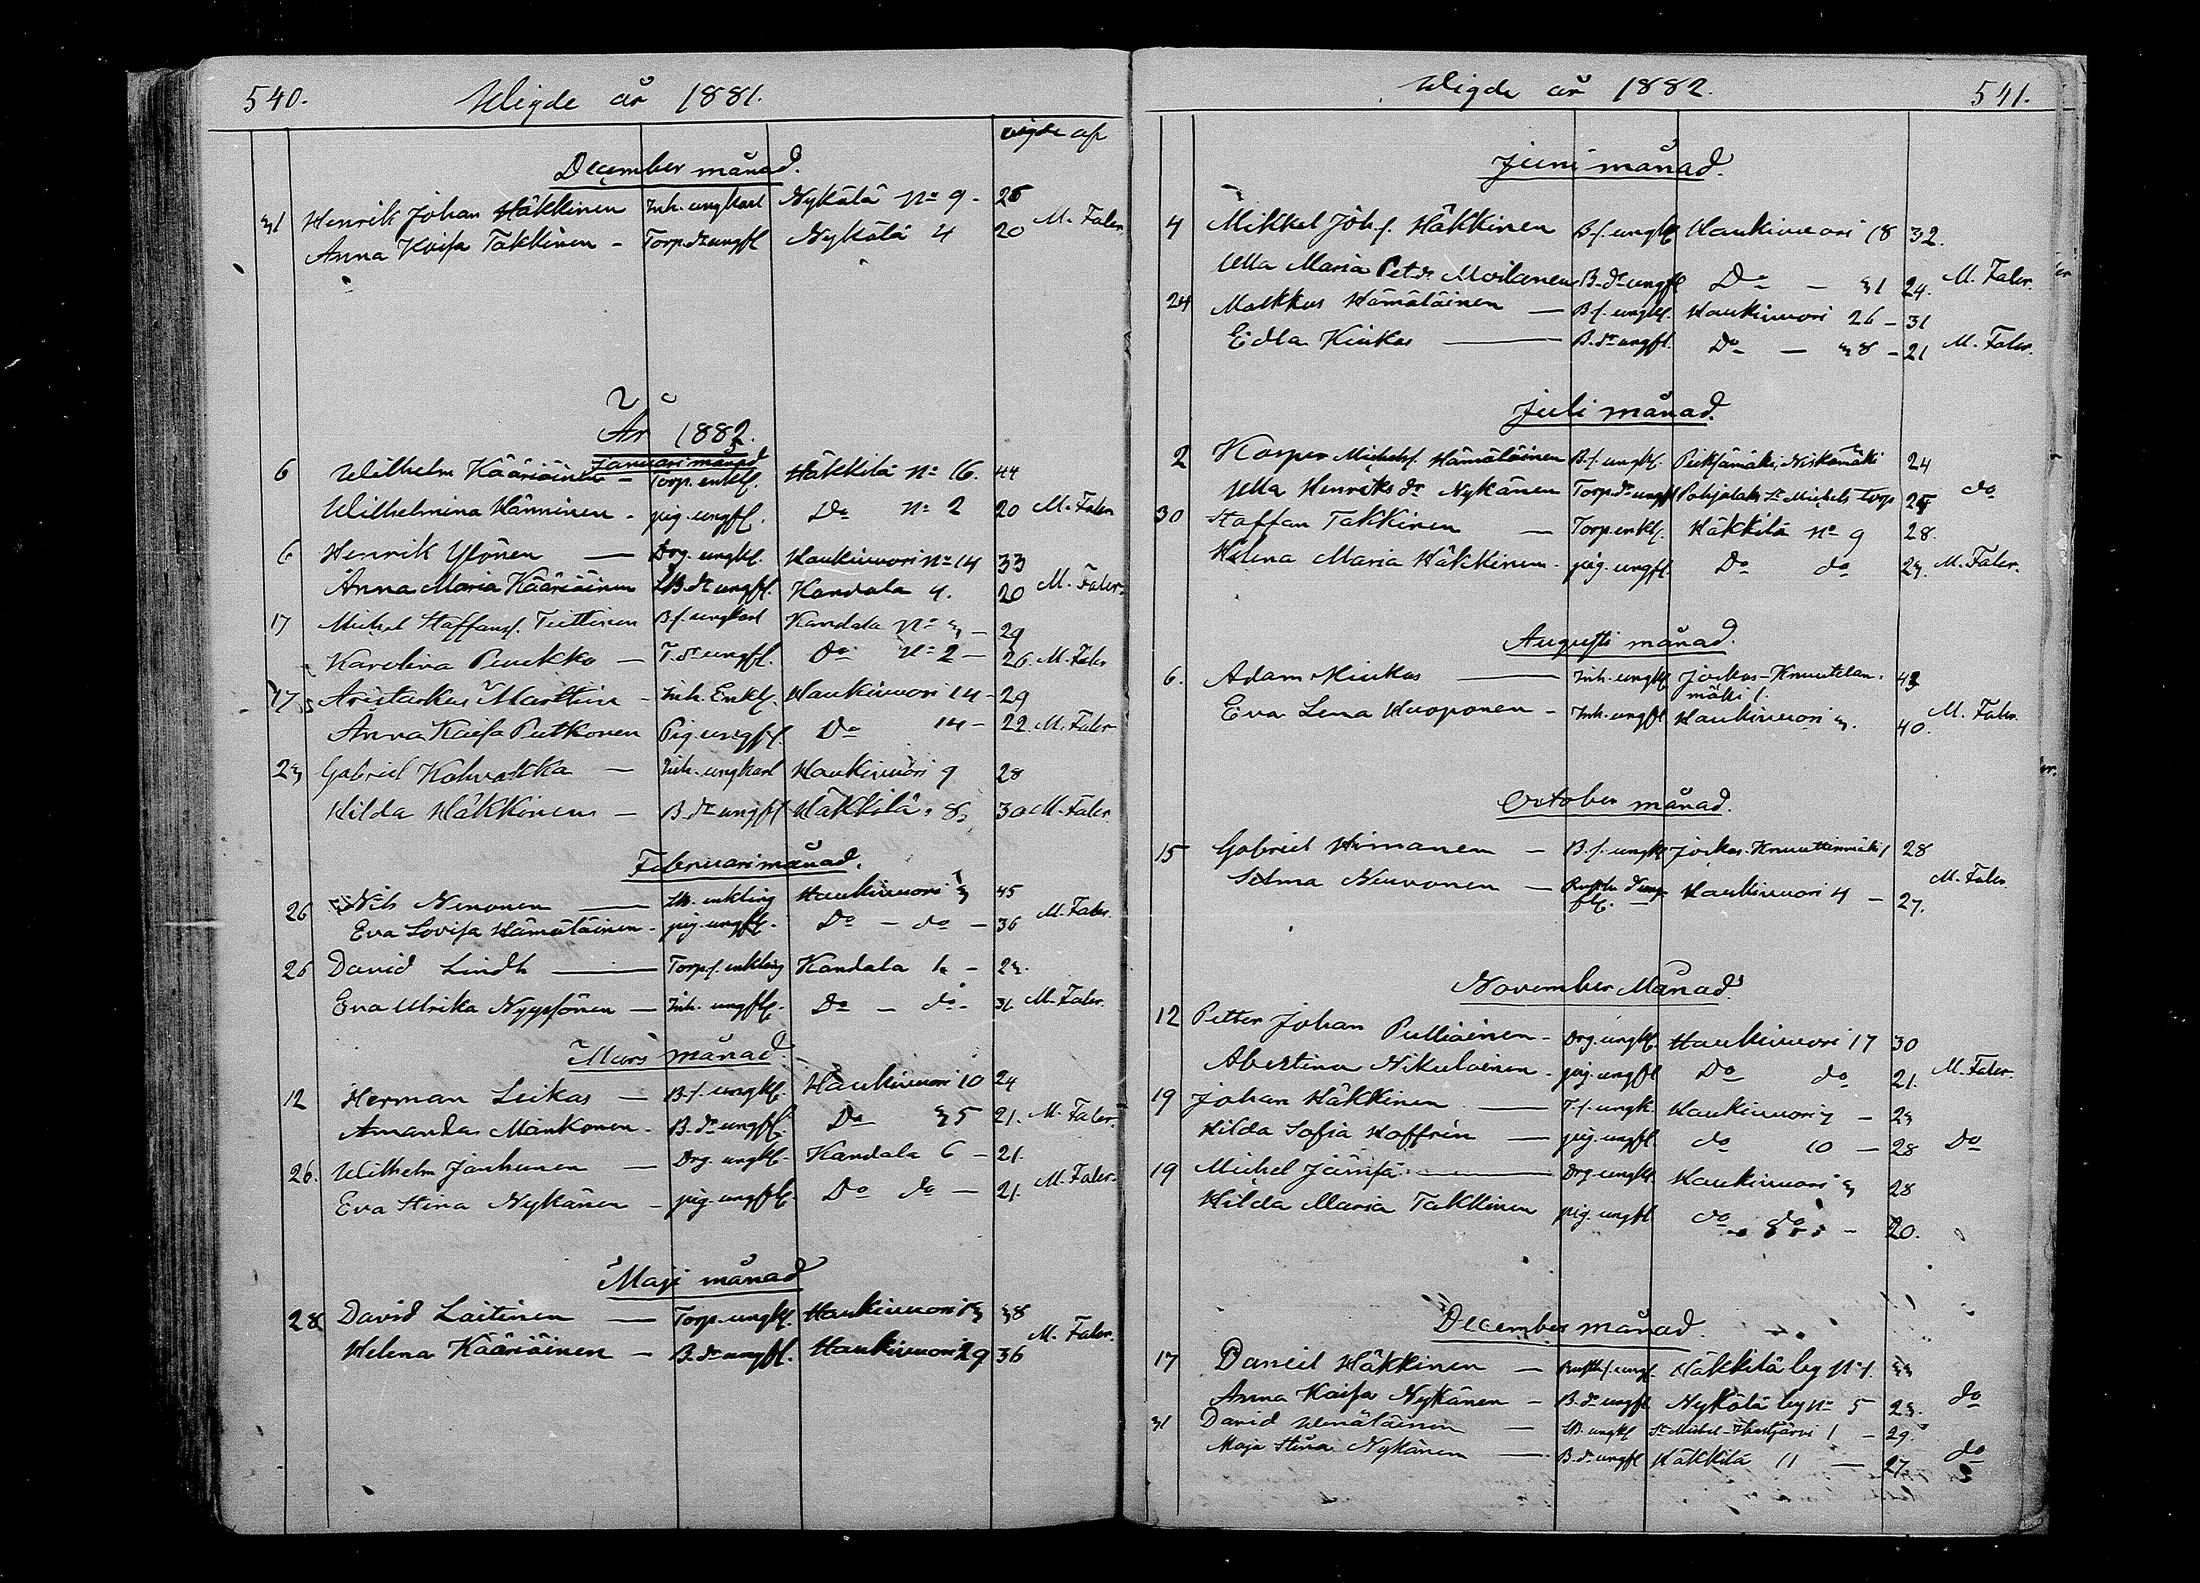 540. Wigde år 1881.
vigde af
December månad.
31 Henrik Johan Häkkinen Inh. ungkarl Nykälä No 9 - 26
Anna Kaisa Takkinen - Torp. dr ungfl Nykälä 4 20 M. Faler
År 1882.
Januari månad
6 Wilhelm Kääriäinen - Torp. enkl. Häkkilä No 16. 44
Wilhelmina Hänninen - pig. ungfl. Do No 2 20 M. Faler
6 Henrik Ylönen — Drg. ungkl. Haukivuori No 14 33
Anna Maria Kääriäinen LB. dr ungfl. Kandala 4. 20 M. Faler.
17 Michel Staffansf. Tiittinen B.f. ungkarl Kandala No 3 - 29
Karolina Puukko — T. dr ungfl. Do No 2 - 26. M. Faler
17 Aristarkus Marttin - Inh. Enkl. Haukivuori 14 - 29
Anna Kaisa Putkonen Pig. ungfl. Do 14 - 22. M. Faler
23 Gabriel Kohvakka — Inh. ungkarl Haukivuori 9 28
Hilda Häkkinen — B. dr ungfl Häkkilä 8 30 M. Faler.
Februari månad.
26 Nils Nenonen — enkling Haukivuori 3 45
Eva Lovisa Hämäläinen - pig. ungfl. Do - do - 36 M. Faler.
26 David Lindh — Torp. f. enkling Kandala 1. - 23.
Eva Ulrika Nyyssönen — Inh. ungfl. Do - do - 31 M. Faler.
Mars månad.
12 Herman Leikas — B.f. ungkl. Haukivuori 10 24
Amanda Mankonen - B. dr ungfl. Do 35 21. M. Faler.
26. Wilhelm Janhunen — Drg. ungkl. Kandala 6 - 21.
Eva Stina Nykänen - pig. ungfl. Do do — 21. M. Faler.
Maji månad
28 David Laitinen — Torp. ungkl. Haukivuori 13 38
Helena Kääriäinen — B. dr ungfl. Haukivuori 29 36 M. Faler.
Wigde år 1882. 541.
Juni månad.
4 Mikkel Joh. f. Häkkinen B.f. ungkl Haukivuori 18 32.
Ulla Maria Pet. dr Moilanen B. dr ungfl Do - 31 24. M. Faler.
24 Markkus Hämäläinen — B.f. ungkl. Haukivuori 26 - 31
Edla Kiukas — B. dr ungfl. Do — 38 - 21 M. Faler.
Juli månad.
2 Kasper Michelsf. Hämäläinen B.f. ungkl. Pieksämäki, Niskamäki 24
Ulla Henriks dr Nykänen Torp. dr ungfl Pohjalak St Michels Torp 24 do
30 Staffan Takkinen — Torp enkl. Häkkilä No 9 28.
Helena Maria Häkkinen - pig. ungfl. Do do 23. M. Faler.
Augusti månad.
6. Adam Kiukas — Inh. ungkl Jockas - Knuutelan
mäki 1. 43
Eva Lena Huoponen - Inh. ungfl Haukivuori 3. 40. M. Faler.
October månad.
15 Gabriel Himanen — B.f. ungkl Jockas - Knuuttinmäki 1 28
Selma Neuvonen — Rusth. d ung-
fl. Haukivuori 4 — 27. M. Faler.
November Månad.
12 Petter Johan Pulliainen - Drg. ungkl. Haukivuori 17 30
Abertina Nikulainen - pig. ungfl Do do 21. M. Faler.
19 Johan Häkkinen — T.f. ungk. Haukivuori 7 - 23
Hilda Sofia Hoffrén — pig. ungfl. do 10 — 28 Do
19 Michel Jämsä — Drg. ungkl. Haukivuori 3 28
Hilda Maria Takkinen pig. ungfl do do — 20.
December månad.
17 Daniel Häkkinen — Rusth. f. ungf. Häkkilä by No 1. 33
Anna Kaisa Nykänen - B. dr ungfl Nykälä by No 5 23. do
31 David Venäläinen — LB. ungkl St Michel 1 - 29.
Maja Stina Nykänen — B. dr ungfl Häkkilä 11 — 27. do